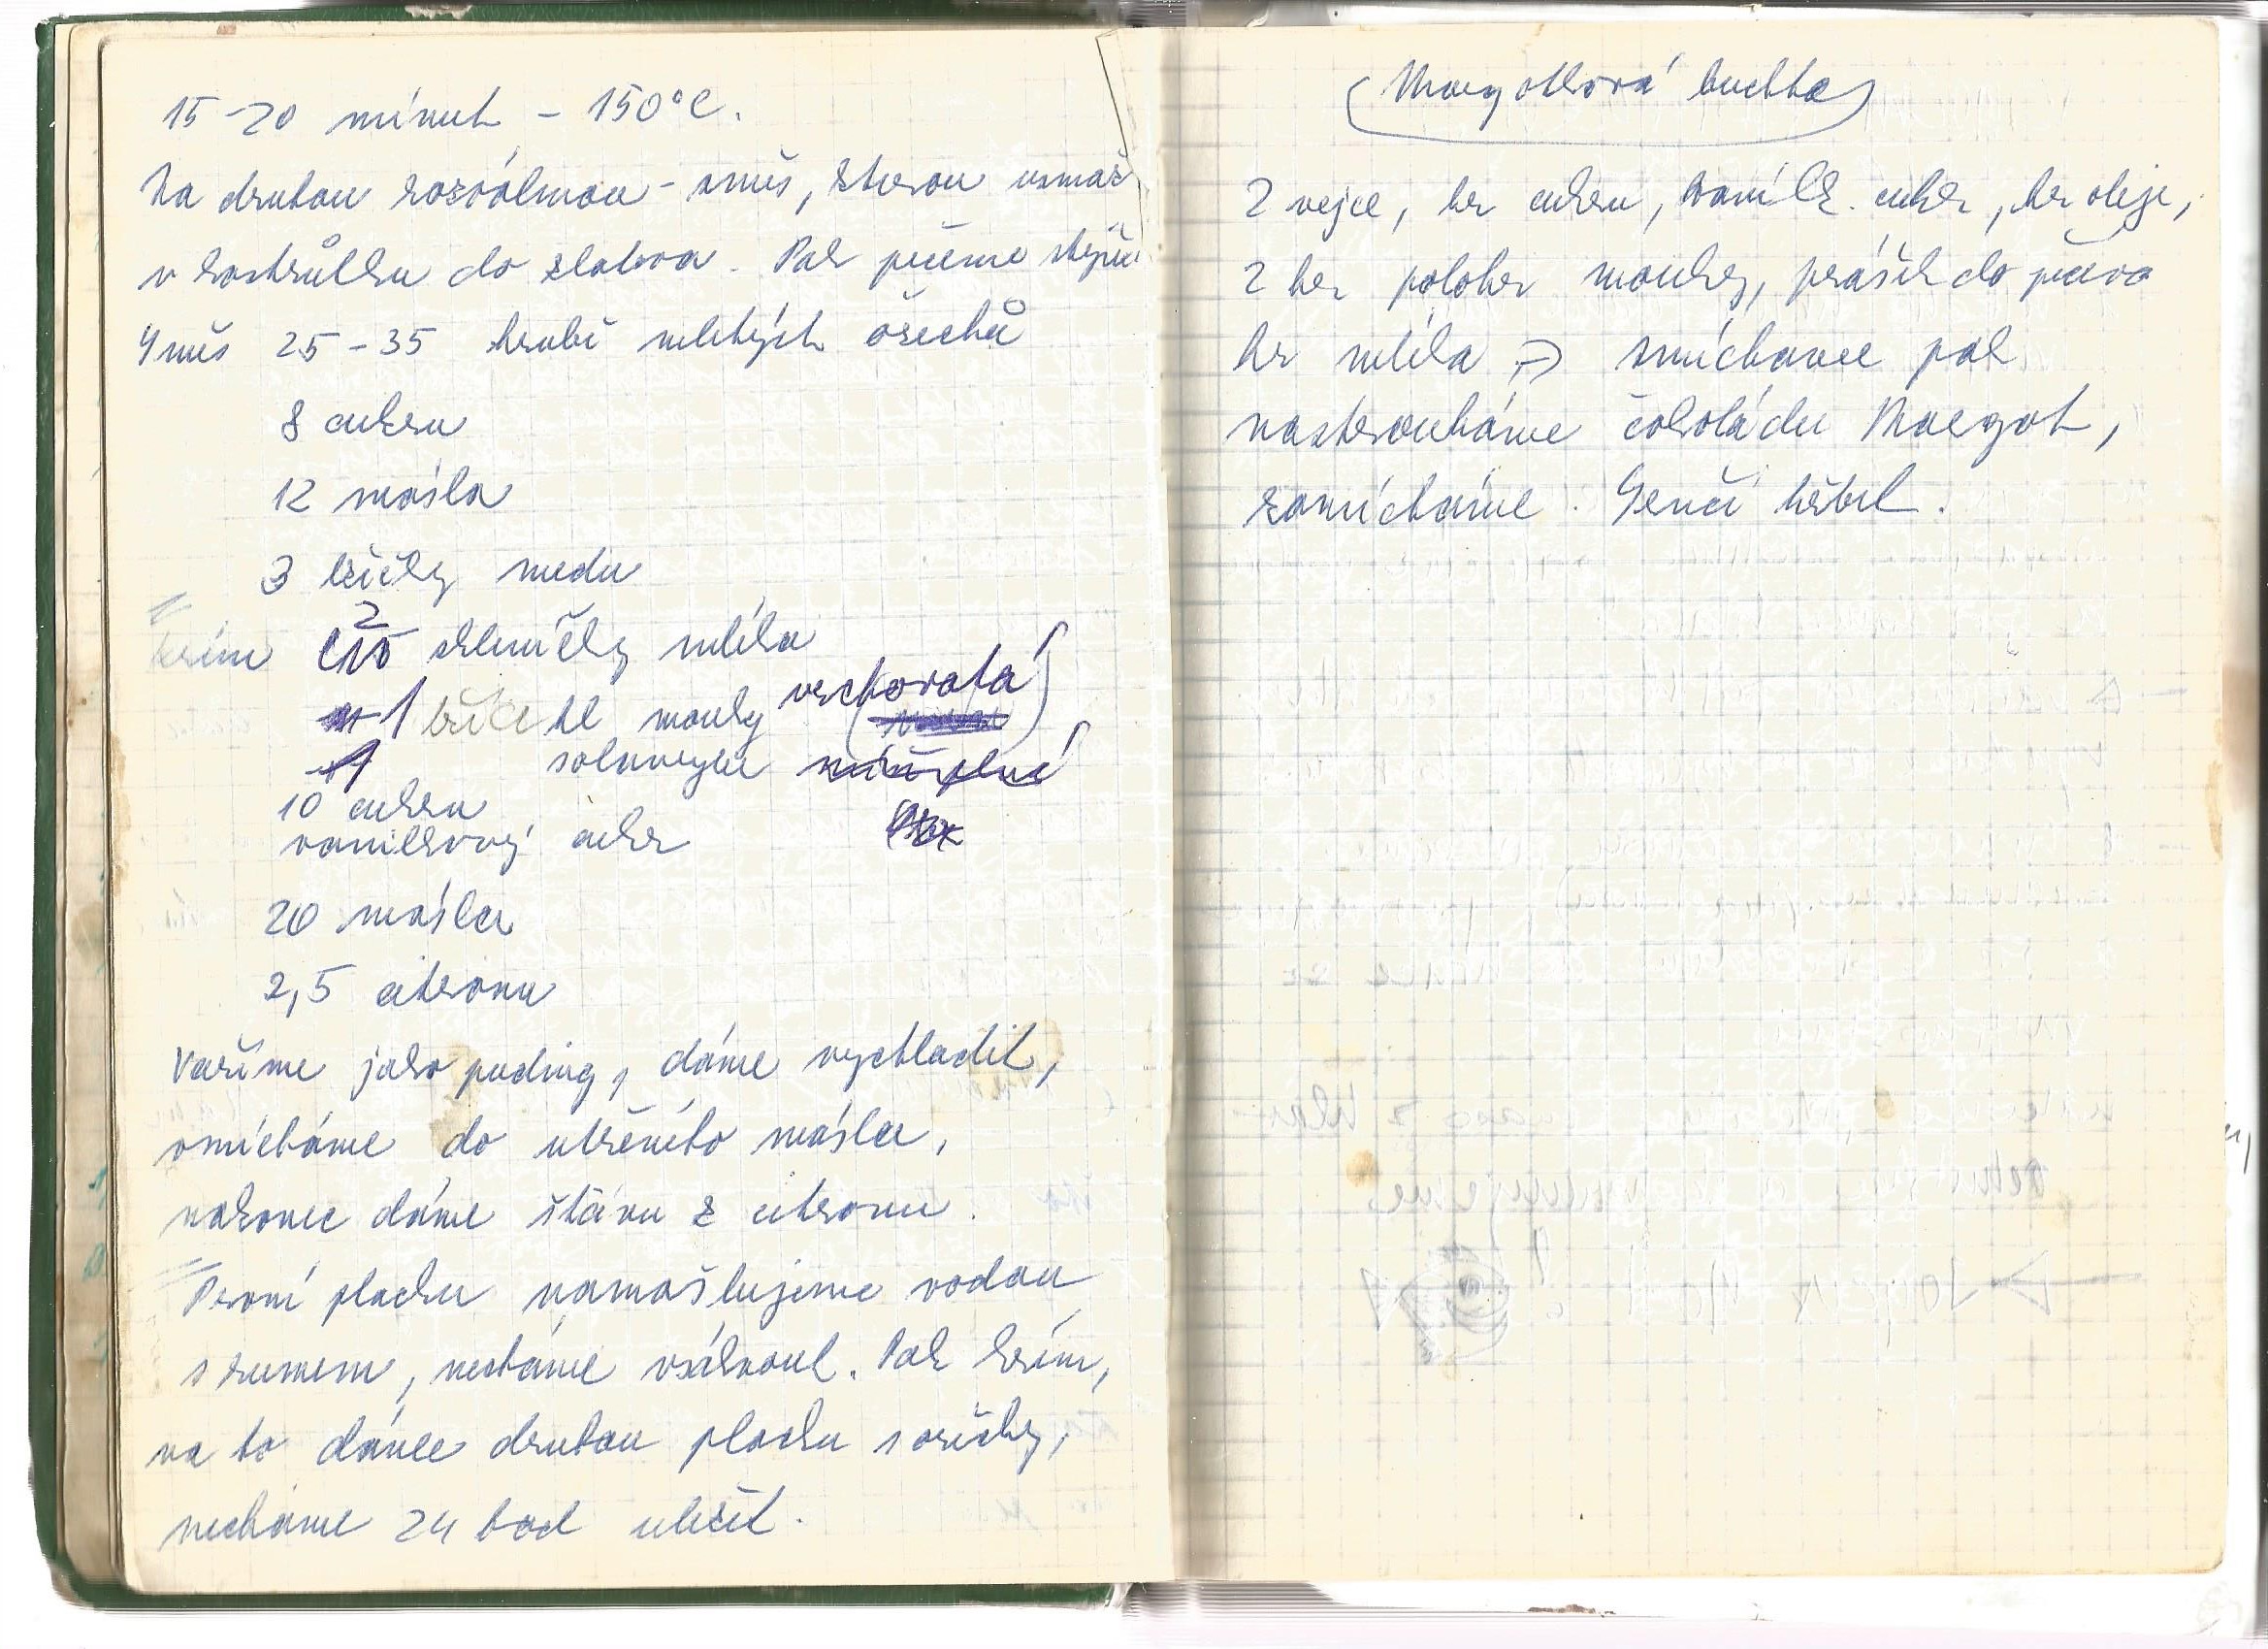 15-20 minut - 150°C.
Na druhou rozválenou - směs, kterou usmaž
v kastrůlku do zlatova. Pak pečeme stejně
Směs 25-35 hrubě mletých ořechů
8 cukru
12 másla
3 lžičky medu
2
krém skleničky mléka
1 lžíce hl mouky vrchovatá
solamylu
10 cukru
vanilkový cukr
20 másla
2,5 citronu
Vaříme jako puding, dáme vychladit,
vmícháme do utřeného másla,
nakonec dáme šťávu z citronu.
První placku namašlujeme vodou
s rumem, necháme vsáknout. Pak krém,
na to dáme druhou placku s ořechy,
necháme 24 hod uležet.
(Margotková buchta)
2 vejce, hr cukru, vanilk. cukr, hr oleje,
2 hr polohr mouky, prášek do peciva
hr mléka => smícháme pak
nastrouháme čokoládu Margot,
zamícháme. Srnčí hřbet.